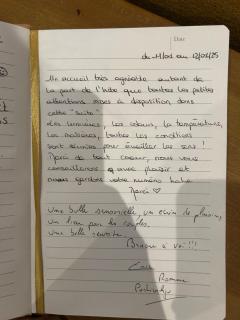 Date
du 11/04 au 12/04/25
Un accueil très agréable autant de
la part de l'hôte que toutes les petites
attentions mises à disposition dans
cette "suite".
Les lumières, les odeurs, la température,
les matières, toutes les conditions
sont réunies pour éveiller les sens !
Merci de tout coeur, nous vous
conseillerons avec plaisir et
nous gardons votre numéro
Merci ♡
Une bulle sensorielle, un écrin de plaisirs,
un lieu pour les couples,
une belle
Bravo à vous !!!